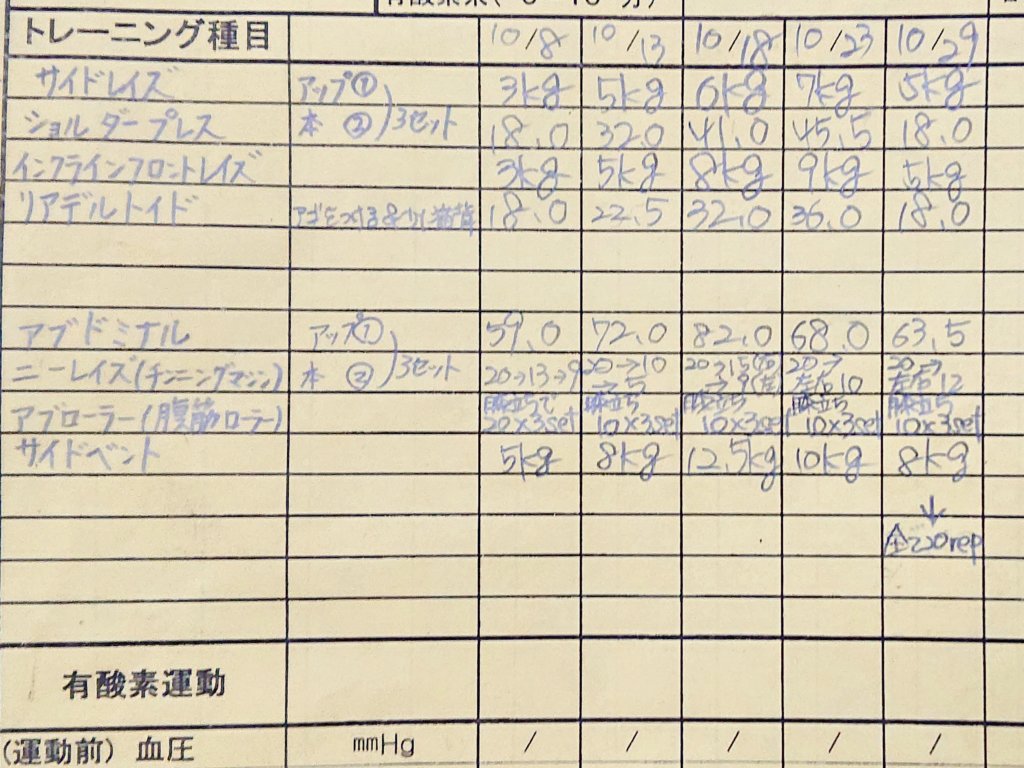 有酸素系( 5 10 分)
トレーニング種目 10/8 10/13 10/18 10/23 10/29
サイドレイズ アップ① 3kg 5kg 6kg 7kg 5kg
ショルダープレス 本 ② 3セット 18.0 32.0 41.0 45.5 18.0
インクラインフロントレイズ 3kg 5kg 8kg 9kg 5kg
リアデルトイド 18.0 22.5 32.0 36.0 18.0
アブドミナル アップ① 59.0 72.0 82.0 68.0 63.5
ニーレイズ(チンニングマシン) 本 ② 3セット 20→13→9 20→10→5 20→15(右)→9(左) 20→左右10 20→左右12
アブローラー(腹筋ローラー) 膝立ちで20×3set 膝立ち10×3set 膝立ち10×3set 膝立ち10×3set 膝立ち10×3set
サイドベント 5kg 8kg 12.5kg 10kg 8kg
↓
全て20rep
有酸素運動
(運動前) 血圧 mmHg / / / / /